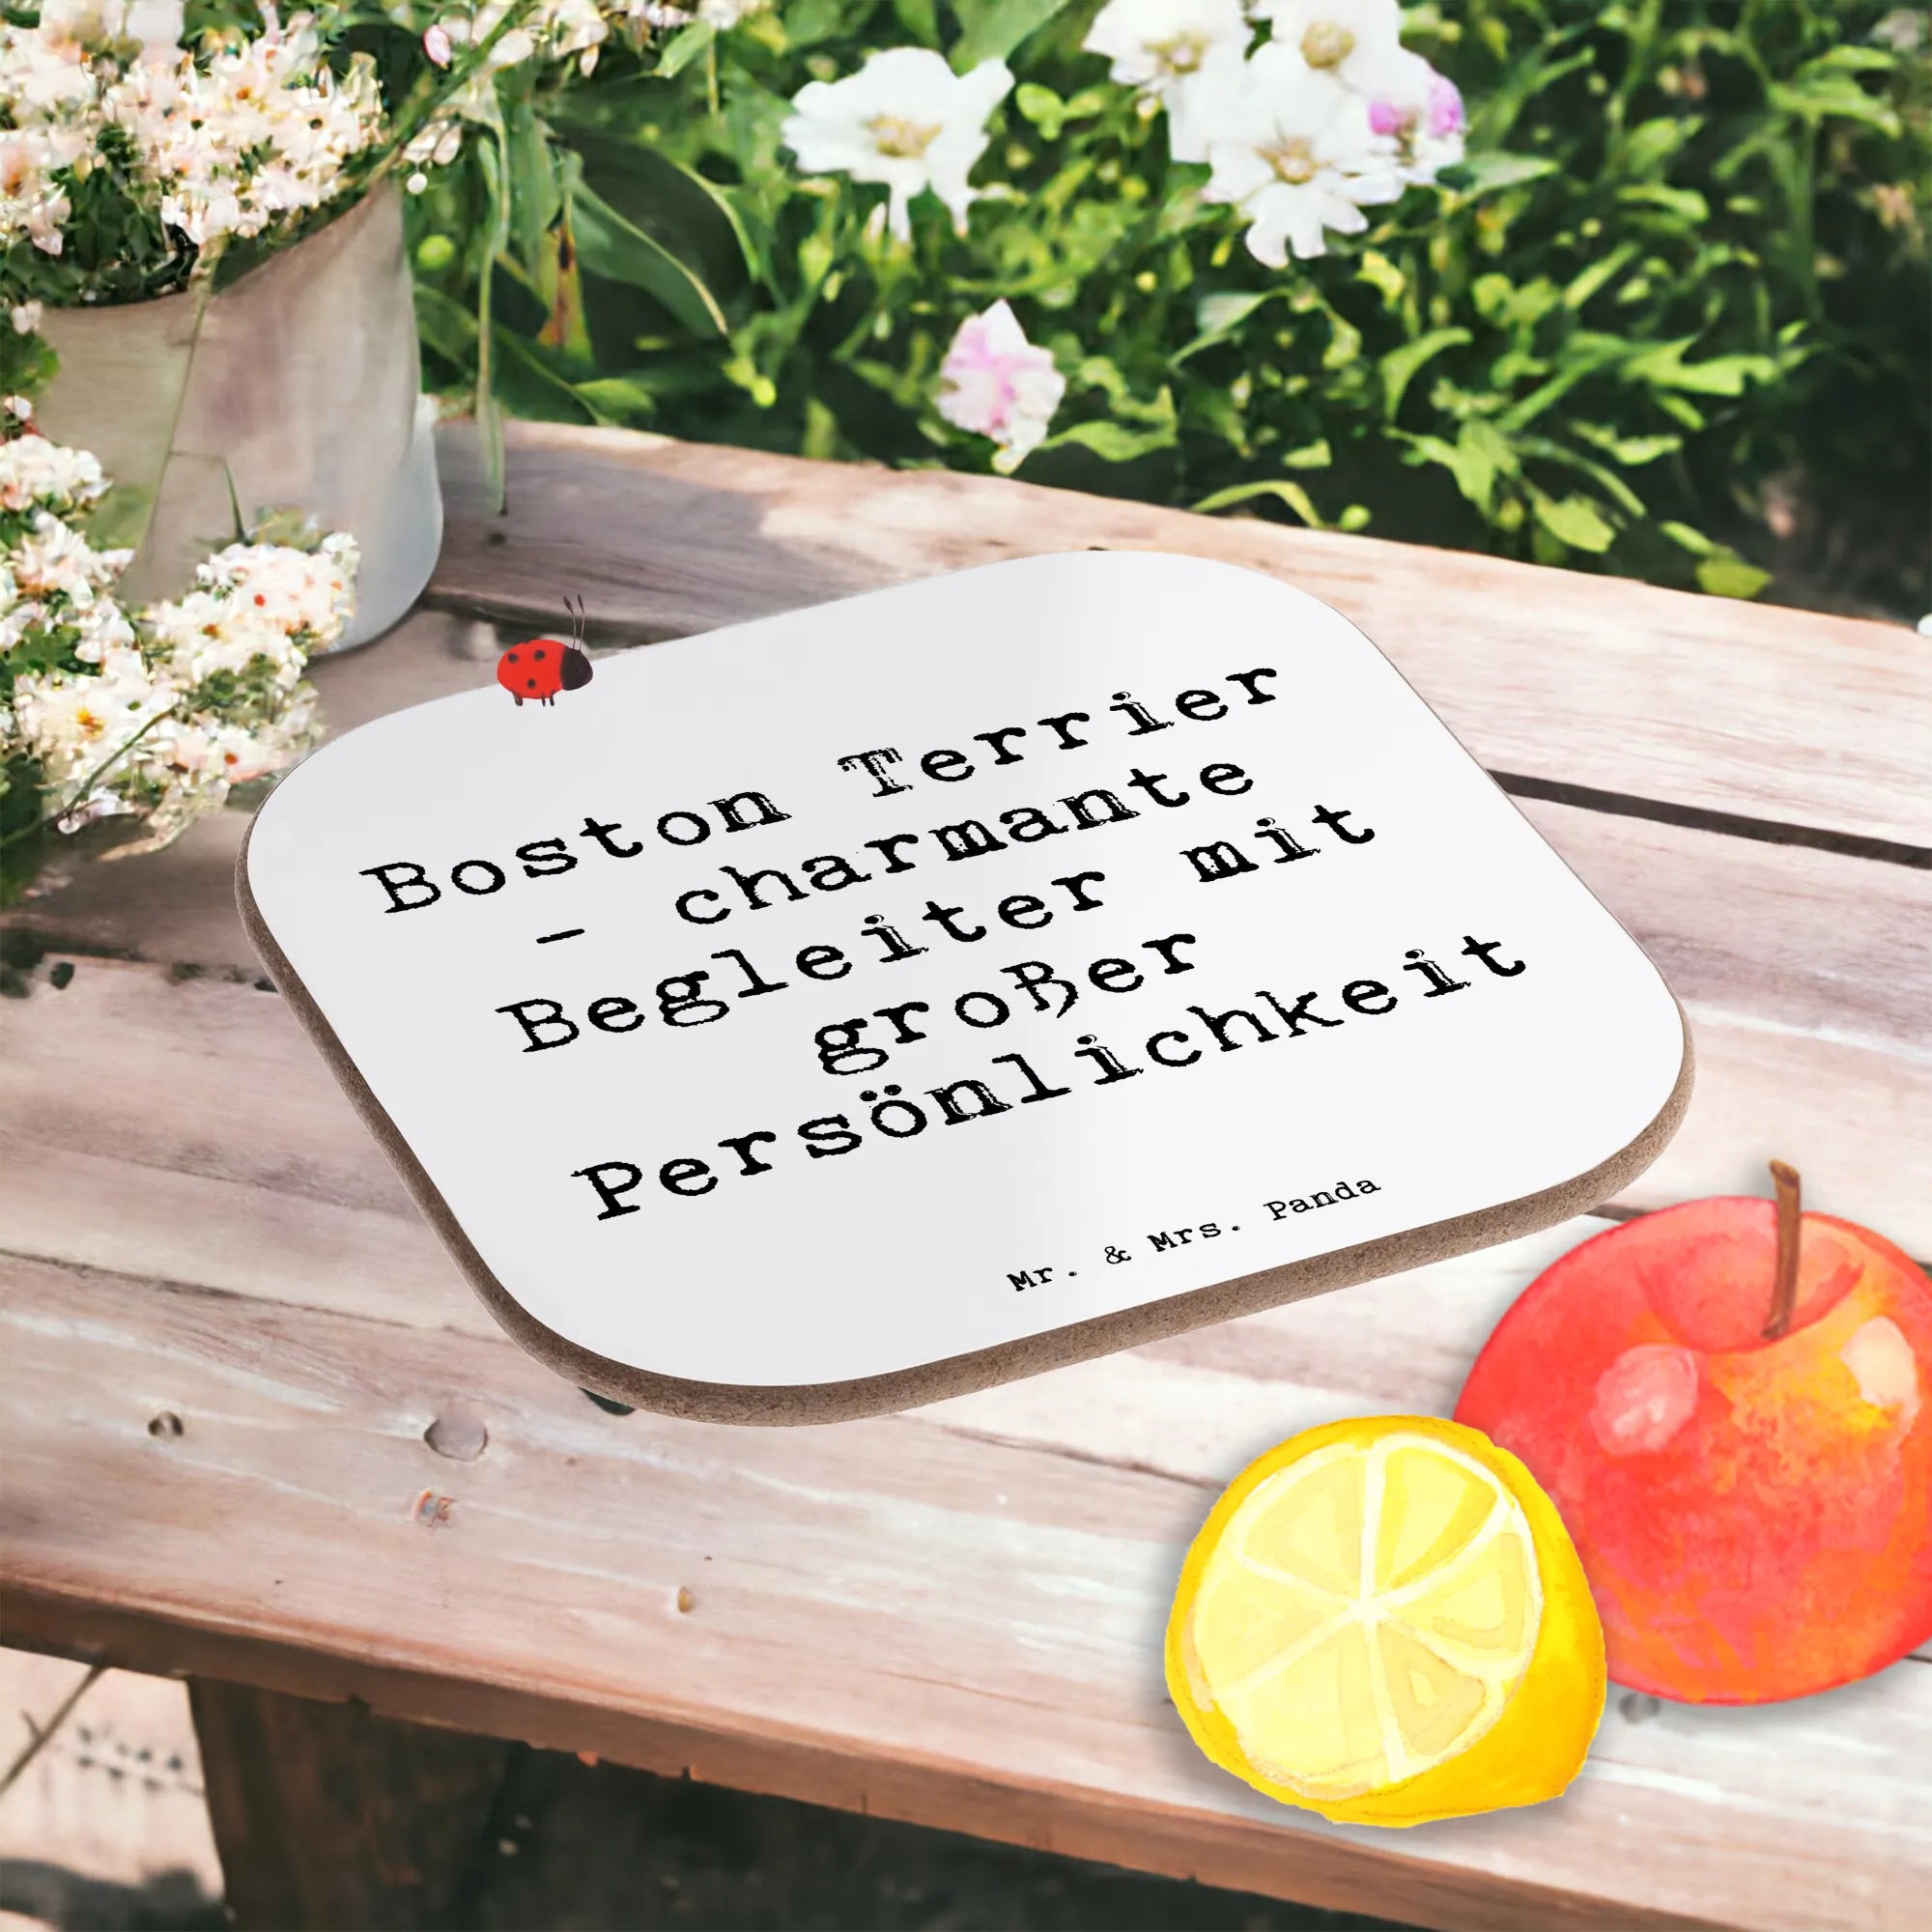 Boston Terrier
- charmante
Begleiter mit
großer
Persönlichkeit
Mr. & Mrs. Panda